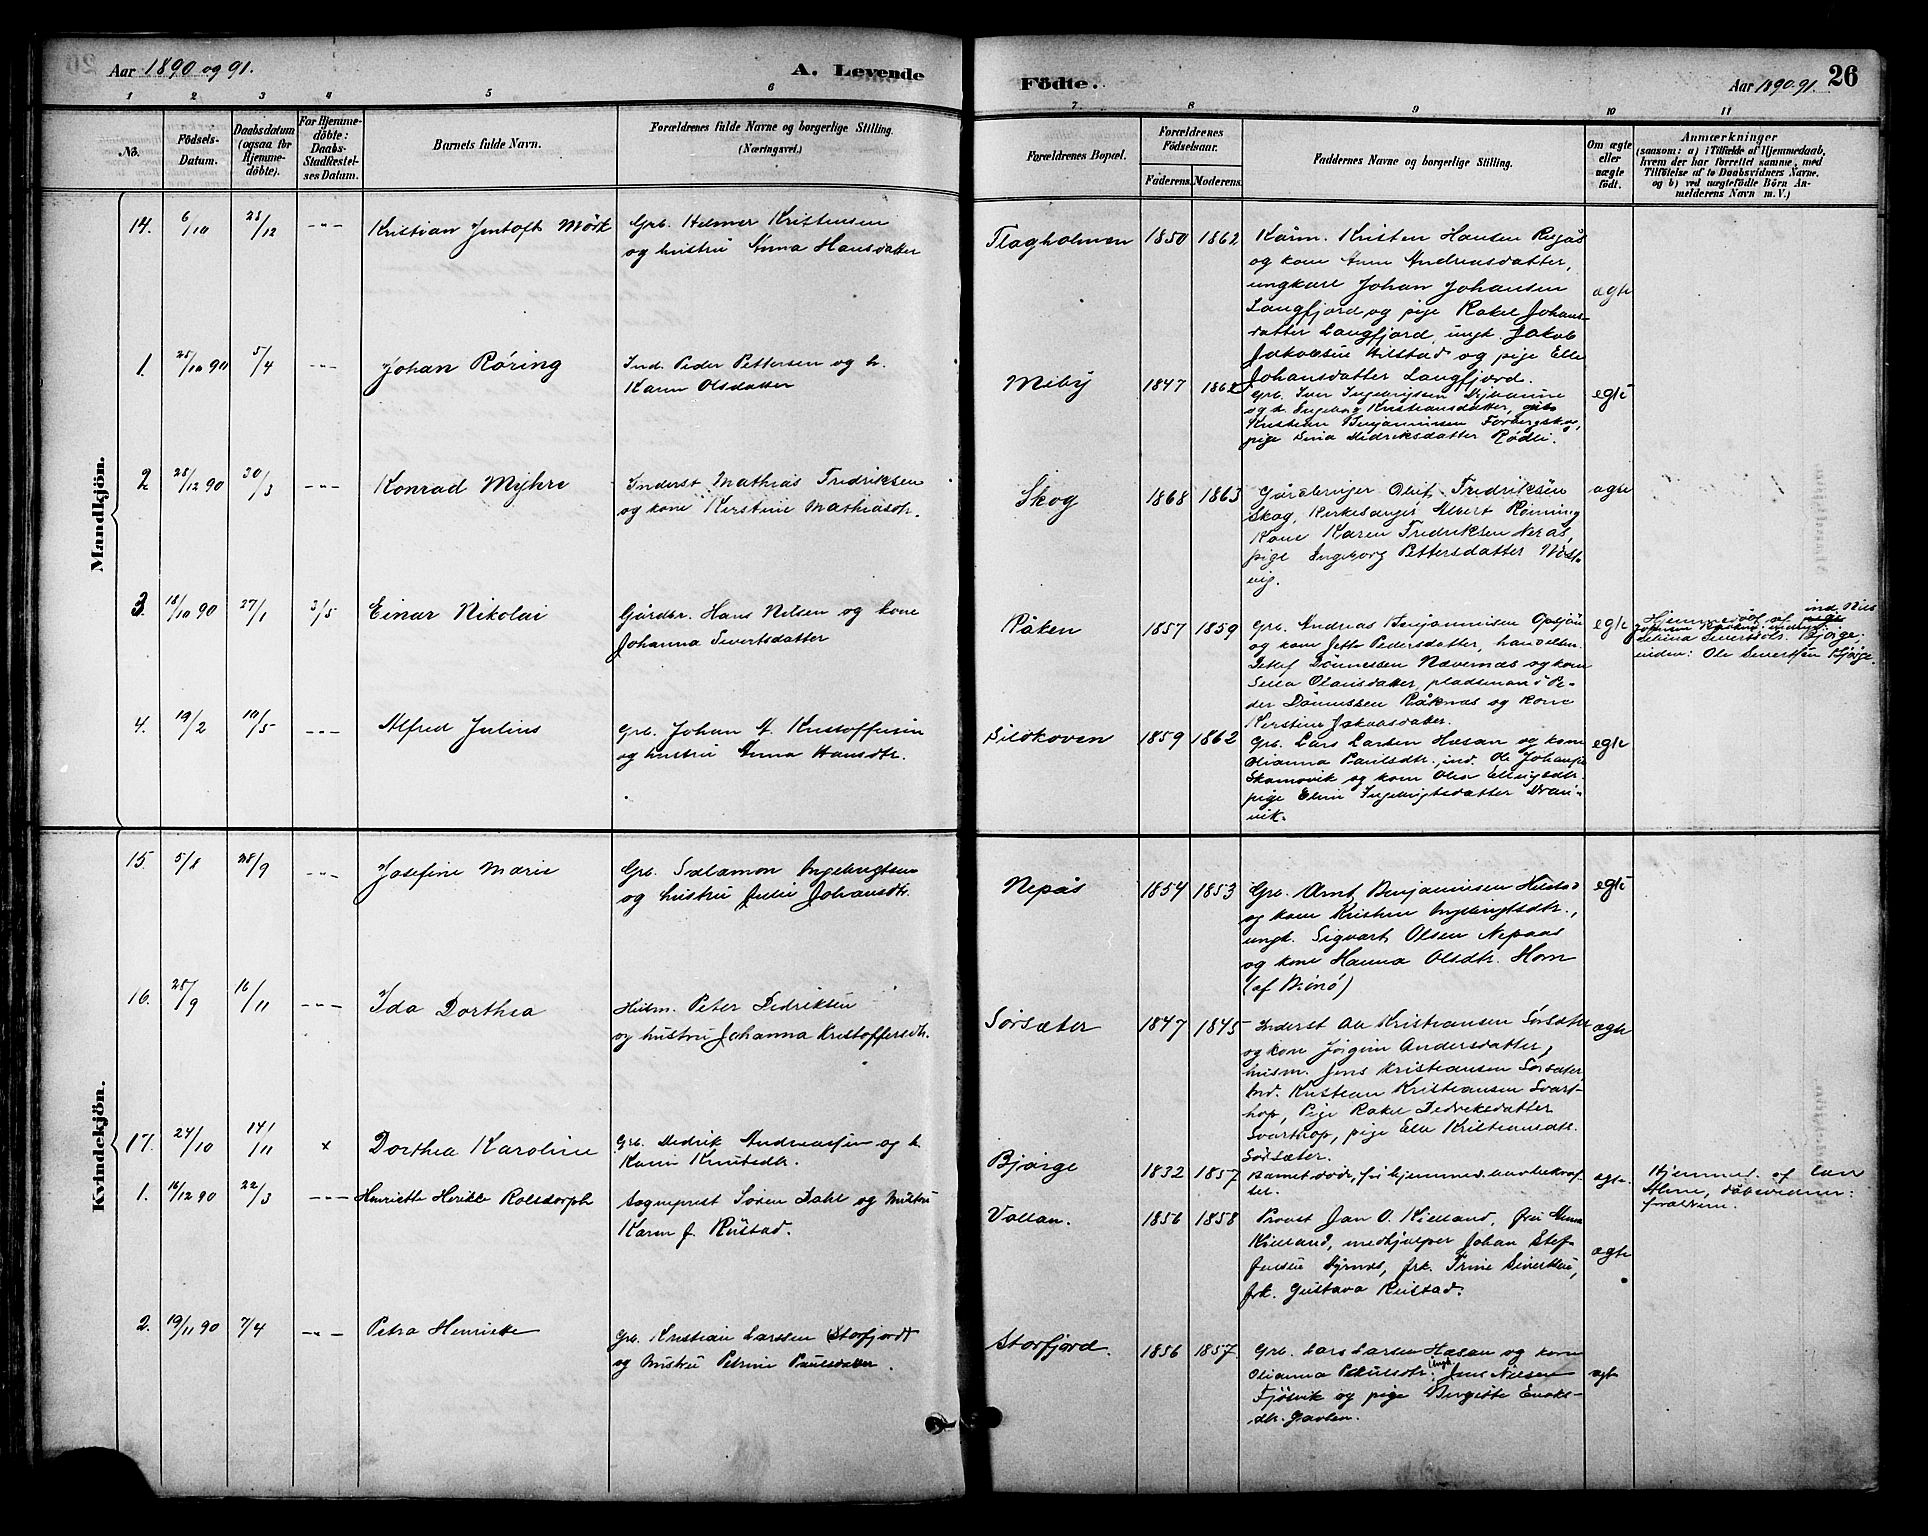 Aar 1890 og 91.
A. Levende
Födte.
Aar 1890-91.
26
1 2 3 4 5 6 7 8 9 10 11
No.
Födsels-
Datum.
Daabsdatum
(ogsaa for
Hjemme-
döbte).
For Hjemme-
döbte:
Daabs-
Stadfestel-
ses Datum.
Barnets fulde Navn.
Forældrenes fulde Navne og borgerlige Stilling.
(Næringsvei.)
Forældrenes Bopæl.
Forældrenes
Födselsaar.
Faderens. Moderens.
Faddernes Navne og borgerlige Stilling.
Om ægte
eller
uægte
födt.
Anmærkninger
(saasom: a) i Tilfælde af Hjemmedaab,
hvem der har forrettet samme, med
Tilföielse af to Daabsvidners Navne.
og b) ved uægtefödte Börn An-
melderens Navn m. V.)
Mandkjön.
14. 6/10 28/12 -"- Kristian Jentoft Mörk
Grb. Helmer Kristensen
og hustru Anna Hansdatter
Flagholmen 1850 1862
Kårm. Kristen Hansen
og kone Ane Andreasdatter,
ungkarl Johan Johansen
Langfjord og pige Rakel Johans-
datter Langfjord, ungk Jakob
Jakobsen Hilstad og pige Elle
Johansdatter Langfjord.
ægte
1. 25/10 90 5/4 -"- Johan Röring
Ind. Peder Pettersen og h.
Karen Olsdatter
Miby 1847 1862
Grb. Iver Ingebrigtsen
og h. Ingeborg Kristiansdatter,
Kristian Benjaminsen Forbergskog,
pige Sina Dedriksdatter Rödli.
egte
2 28/12 90 30/3 -"- Konrad Myhre
Inderst Mathias Fredriksen
og kone Kerstine Mathiasdtr.
Skog 1868 1863
Gårdbruger Oluf Fredriksen
Skog, Kirkesanger Albert Rönning
Kone Karen Fredriksen Nerås,
pige Ingeborg Pettersdatter Vest-
vig.
ægte
3. 18/10 90 27/1 3/5 Einar Nikolai
Gårdbr. Hans Nilsen og kone
Johanna Sivertsdatter
Råken 1857 1859
Grb. Andreas Benjaminsen Opsjön
og kone Jette Pedersdatter, handelsm.
Detlef Dönnessen Nævernæs og kone
Selia Olausdatter, pladsmand Pe-
der Dönnessen Råknæs og kone
Kerstine Jakobsdatter.
egte
Hjemmedöbt af ind. Nils
Selina Sivertsdtr. Bjørge;
viden: Ole Sivertsen Bjørge.
4. 19/2 10/5 --- Alfred Julius
Grb. Johan A. Kristoffersen
og hustru Anna Hansdtr.
Sildhoven 1859 1862
Grb. Lars Larsen Hæsan og kone
Olianna Paulsdtr., ind. Ole Johansen
Skomovik og kone Olea Ellingsdtr.
pige Elen Ingebrigtsdatter Dran-
vik.
egte
Kvindekjön.
15. 5/8 28/9 -"- Josefine Marie
Grb. Salamon Ingebrigtsen
og hustru Julie Johansdtr.
Nepås 1854 1853
Grb. Arnt Benjaminsen Hilstad
og kone Kristine Ingebrigtsdtr.,
ungk. Sigvart Olsen Nepaas
og kone Hanna Olsdtr. Horn
(af Brönö)
egte
16. 28/9 16/11 -"- Ida Dorthea
Husm. Peter Dedriksen
og hustru Johanna Kristoffersdtr.
Sörsæter 1847 1845
Inderst Ole Kristiansen Sörsæter
og kone Jörgine Andersdatter,
husm. Jens Kristiansen Sörsæter
Ind. Kristian Kristiansen Svart-
hop, Pige Rakel Dedriksdatter
Svarthop, pige Elle Kristiansdtr.
Sörsæter.
ægte
17. 24/10 14/11 x Dorthea Karoline
Grb. Dedrik Andreassen og h.
Karen Knutsdtr.
Bjørge 1832 1857
Barnet döde, för hjemmed. kunde bekræf-
tes.
ægte
Hjemmed. af
döbevidner:
forældrene.
1. 16/12 90 22/3 -"- Henriette Herike Rolsdorph
Sogneprest Sören Dahl og hustru
Karen f. Rustad.
Vollan. 1856 1858
Provst Jan O. Kielland, fru Anna
Kielland, medhjælper Johan Stef-
fensen Dyrnæs, frk. Trine Sivertsen,
frk. Gustava Rustad.
ægte
2. 19/11 90 7/4 -"- Petra Henriette
Grb. Kristian Larssen (Storfjord)
og hustru Petrine Paulsdatter.
Storfjord. 1856 1857
Grb. Lars Larsen Hæsan og kone
Olianna Paulsdtr. Ungk. Jens Nilsen
Fjösvik og pige Birgitte Enoks-
dtr. Gaulen.
ægte